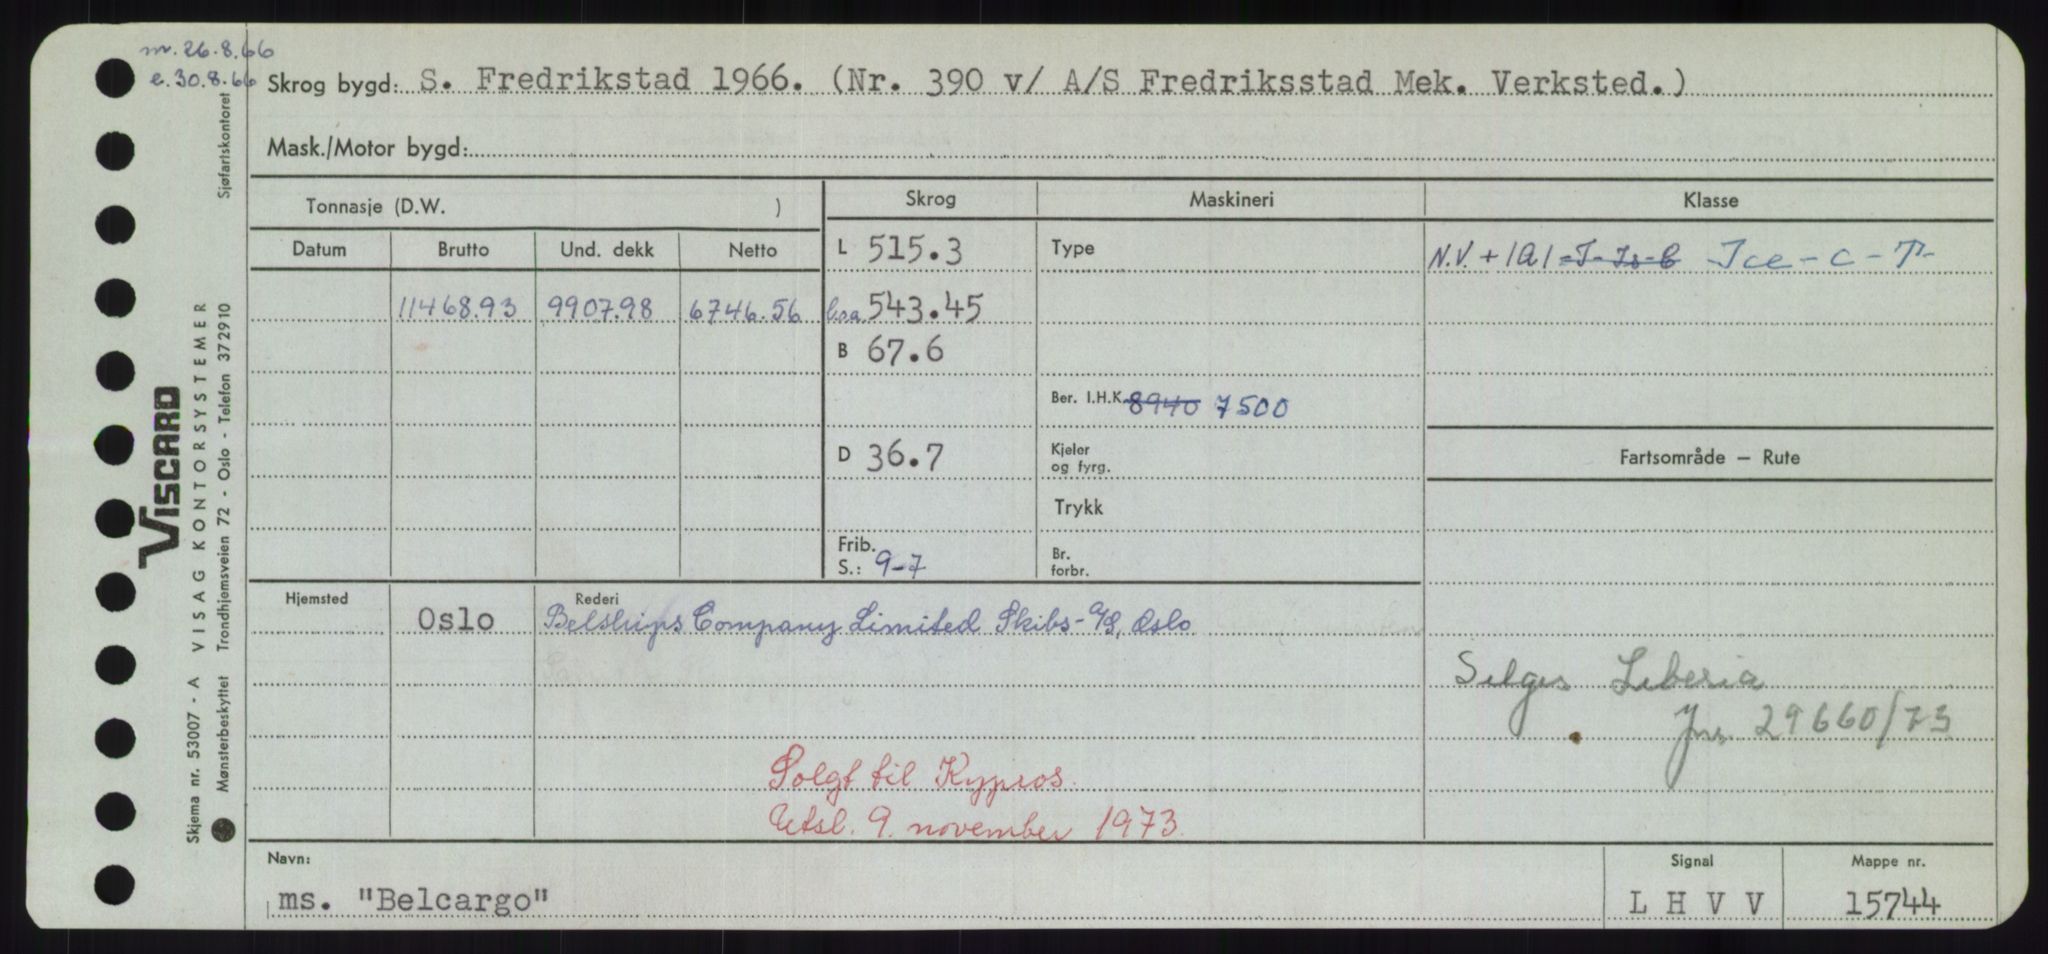 m. 26.8.66
e. 30.8.66
Skrog bygd: S. Fredrikstad 1966. (Nr. 390 v/ A/S Fredriksstad Mek. Verksted.)
Mask./Motor bygd:
Tonnasje (D.W. )
Skrog
Maskineri
Klasse
Datum
Brutto
Und. dekk
Netto
L 515.3
Type
N.V. + 1A1 - T - Is - C Ice - C - T -
11468.93 9907.98 6746.56
l.o.a. 543.45
B 67.6
Ber. I.H.K. 8940 7500
D 36.7
Kjeler
og fyrg.
Fartsområde — Rute
Trykk
Frib.
S.: 9-7
Br.
forbr.
Hjemsted
Oslo
Rederi
Belships Company Limited Skibs-A/S, Oslo
Selges Liberia
Jnr. 29660/73
Solgt til Kypros.
Utsl. 9. november 1973.
Navn:
ms. "Belcargo"
Signal
L H V V
Mappe nr.
15744
Sjøfartskontoret
VISCARD
VISAG KONTORSYSTEMER
Trondhjemsveien 72 - Oslo - Telefon 372910
Skjema nr. 53007 - A
Mønsterbeskyttet